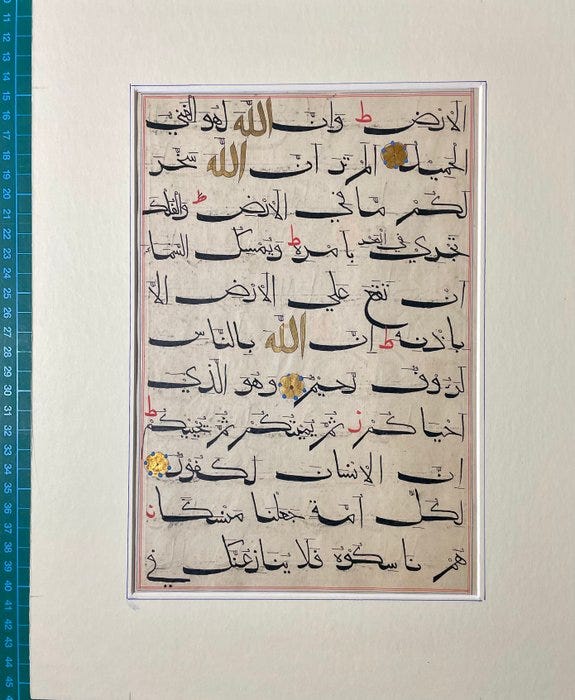 الارض ط وان الله لهو الغني
الحميد الم تر ان الله سخر
لكم ما في الارض ط والفلك
تجري في البحر بامره ط ويمسك السماء
ان تقع على الارض الا
باذنه ط ان الله بالناس
لرءوف رحيم وهو الذي
احياكم ز ثم يميتكم ثم يحييكم ط
ان الانسان لكفور
لكل امة جعلنا منسكا
هم ناسكوه فلا ينازعنك في
10
11
12
13
14
15
16
17
18
19
20
21
22
23
24
25
26
27
28
29
30
31
32
33
34
35
36
37
38
39
40
41
42
43
44
45